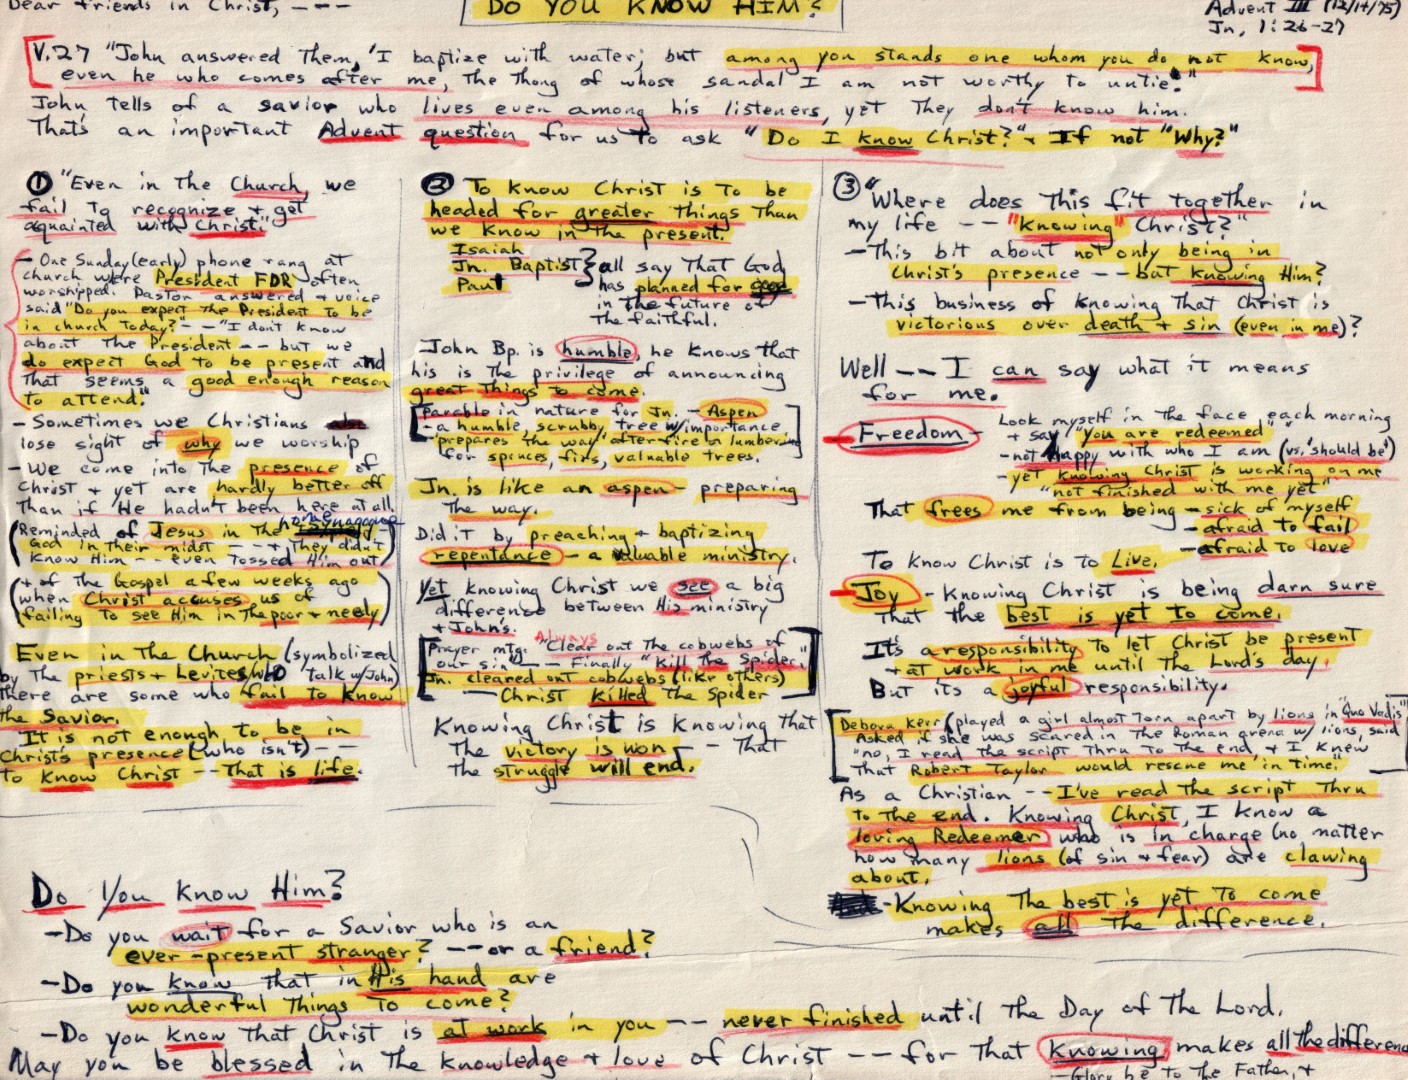 Dear friends in Christ, ---
DO YOU KNOW HIM?
Advent III (12/14/75)
Jn. 1:26-27
V.27 "John answered Them, 'I baptize with water; but among you stands one whom you do not know,
even he who comes after me, The Thong of whose sandal I am not worthy to untie.'"
John tells of a savior who lives even among his listeners, yet They don't know him.
That's an important Advent question for us to ask "Do I know Christ?" + If not "Why?"
① "Even in The Church, we
fail To recognize + get
aquainted with Christ."
- One Sunday (early) phone rang at
church where President FDR often
worshipped. Pastor answered + voice
said "Do you expect The President To be
in church Today?" -- "I don't know
about The President -- but we
do expect God to be present and
That seems a good enough reason
to attend."
- Sometimes we Christians
lose sight of why we worship
- We come into The presence of
Christ + yet are hardly better off
Than if He hadn't been here at all.
(Reminded of Jesus in The home synagogue
God in Their midst --- + They didn't
Know Him -- even Tossed Him out)
(+ of The Gospel a few weeks ago
when Christ accuses us of
failing To see Him in The poor + needy)
Even in The Church (symbolized
by The priests + Levites who Talk w/John)
There are some who fail to know
the Savior.
It is not enough to be in
Christ's presence (who isn't) --
To know Christ -- That is life.
② To know Christ is To be
headed for greater Things Than
we know in The present.
Isaiah
Jn. Baptist
Paul
} all say That God
has planned for good
in The future of
The faithful.
John Bp. is humble, he knows that
his is The privilege of announcing
great Things to come.
[Parable in nature for Jn. - Aspen
- a humble, scrubby tree w/importance
"prepares The way" after fire or lumbering
for spruces, firs, valuable trees.]
Jn. is like an aspen - preparing
The way.
Did it by preaching + baptizing
repentance - a valuable ministry.
Yet knowing Christ we see a big
difference between His ministry
+ John's.
[Prayer mtg. Always "Clear out The cobwebs of
our sin" -- Finally "Kill The Spider."
Jn. cleared out cobwebs (like others)
- Christ killed The Spider]
Knowing Christ is knowing that
The victory is won -- That
The struggle will end.
③ "Where does This fit together in
my life -- "knowing" Christ?"
- This bit about not only being in
Christ's presence -- but knowing Him?
- This business of knowing That Christ is
victorious over death + sin (even in me)?
Well -- I can say what it means
for me.
Freedom - Look myself in The face each morning
+ say "you are redeemed"
- not happy with who I am (vs. 'should be')
- yet knowing Christ is working on me
"not finished with me yet"
That frees me from being - sick of myself
- afraid to fail
- afraid to love
To know Christ is To Live.
Joy - Knowing Christ is being darn sure
That the best is yet to come.
It's a responsibility To let Christ be present
+ at work in me until The Lord's day,
But it's a joyful responsibility.
[Debora Kerr (played a girl almost Torn apart by lions in "Quo Vadis"
Asked if she was scared in The Roman arena w/ lions, said
"no, I read The script Thru To The end, + I knew
That Robert Taylor would rescue me in time."]
As a Christian -- I've read The script Thru
To The end. Knowing Christ, I know a
loving Redeemer who is in charge (no matter
how many lions (of sin + fear) are clawing
about.
- Knowing The best is yet To come
makes all The difference.
Do You Know Him?
- Do you wait for a Savior who is an
ever-present stranger? -- or a friend?
- Do you know that in His hand are
wonderful Things To come?
- Do you know That Christ is at work in you -- never finished until The Day of The Lord.
May you be blessed in The knowledge + love of Christ -- for That knowing makes all the difference
- Glory be to The Father, +